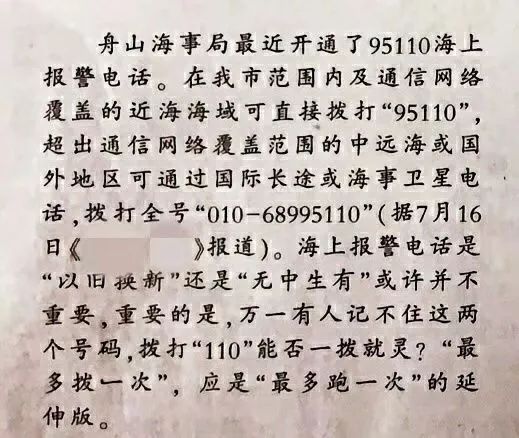 舟山海事局最近开通了95110海上
报警电话。在我市范围内及通信网络
覆盖的近海海域可直接拨打“95110”，
超出通信网络覆盖范围的中远海或国
外地区可通过国际长途或海事卫星电
话，拨打全号“010-68995110”（据7月16
日《 》报道）。海上报警电话是
“以旧换新”还是“无中生有”或许并不
重要，重要的是，万一有人记不住这两
个号码，拨打“110”能否一拨就灵？“最
多拨一次”，应是“最多跑一次”的延
伸版。